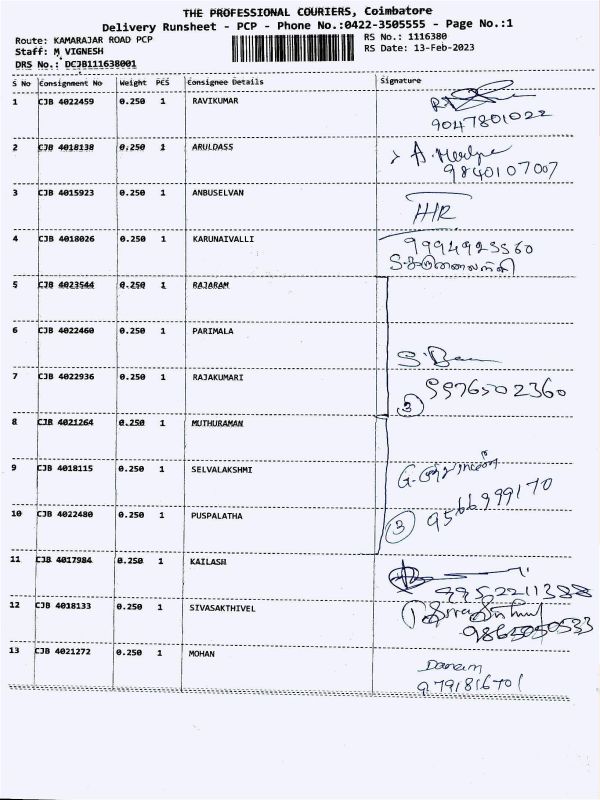 THE PROFESSIONAL COURIERS, Coimbatore
Delivery Runsheet - PCP - Phone No.:0422-3505555 - Page No.:1
Route: KAMARAJAR ROAD PCP
RS No.: 1116380
Staff: M VIGNESH
RS Date: 13-Feb-2023
DRS No.: DCJB111638001
S No Consignment No Weight PCS Consignee Details Signature
1 CJB 4022459 0.250 1 RAVIKUMAR
9047801022
2 CJB 4018138 0.250 1 ARULDASS
9840107007
3 CJB 4015923 0.250 1 ANBUSELVAN
4 CJB 4018026 0.250 1 KARUNAIVALLI 9994923560
5 CJB 4023544 0.250 1 RAJARAM
6 CJB 4022460 0.250 1 PARIMALA
7 CJB 4022936 0.250 1 RAJAKUMARI
3 9976502360
8 CJB 4021264 0.250 1 MUTHURAMAN
9 CJB 4018115 0.250 1 SELVALAKSHMI
10 CJB 4022480 0.250 1 PUSPALATHA 3 9566999170
11 CJB 4017984 0.250 1 KAILASH
9952211388
12 CJB 4018133 0.250 1 SIVASAKTHIVEL
13 CJB 4021272 0.250 1 MOHAN
9791816701